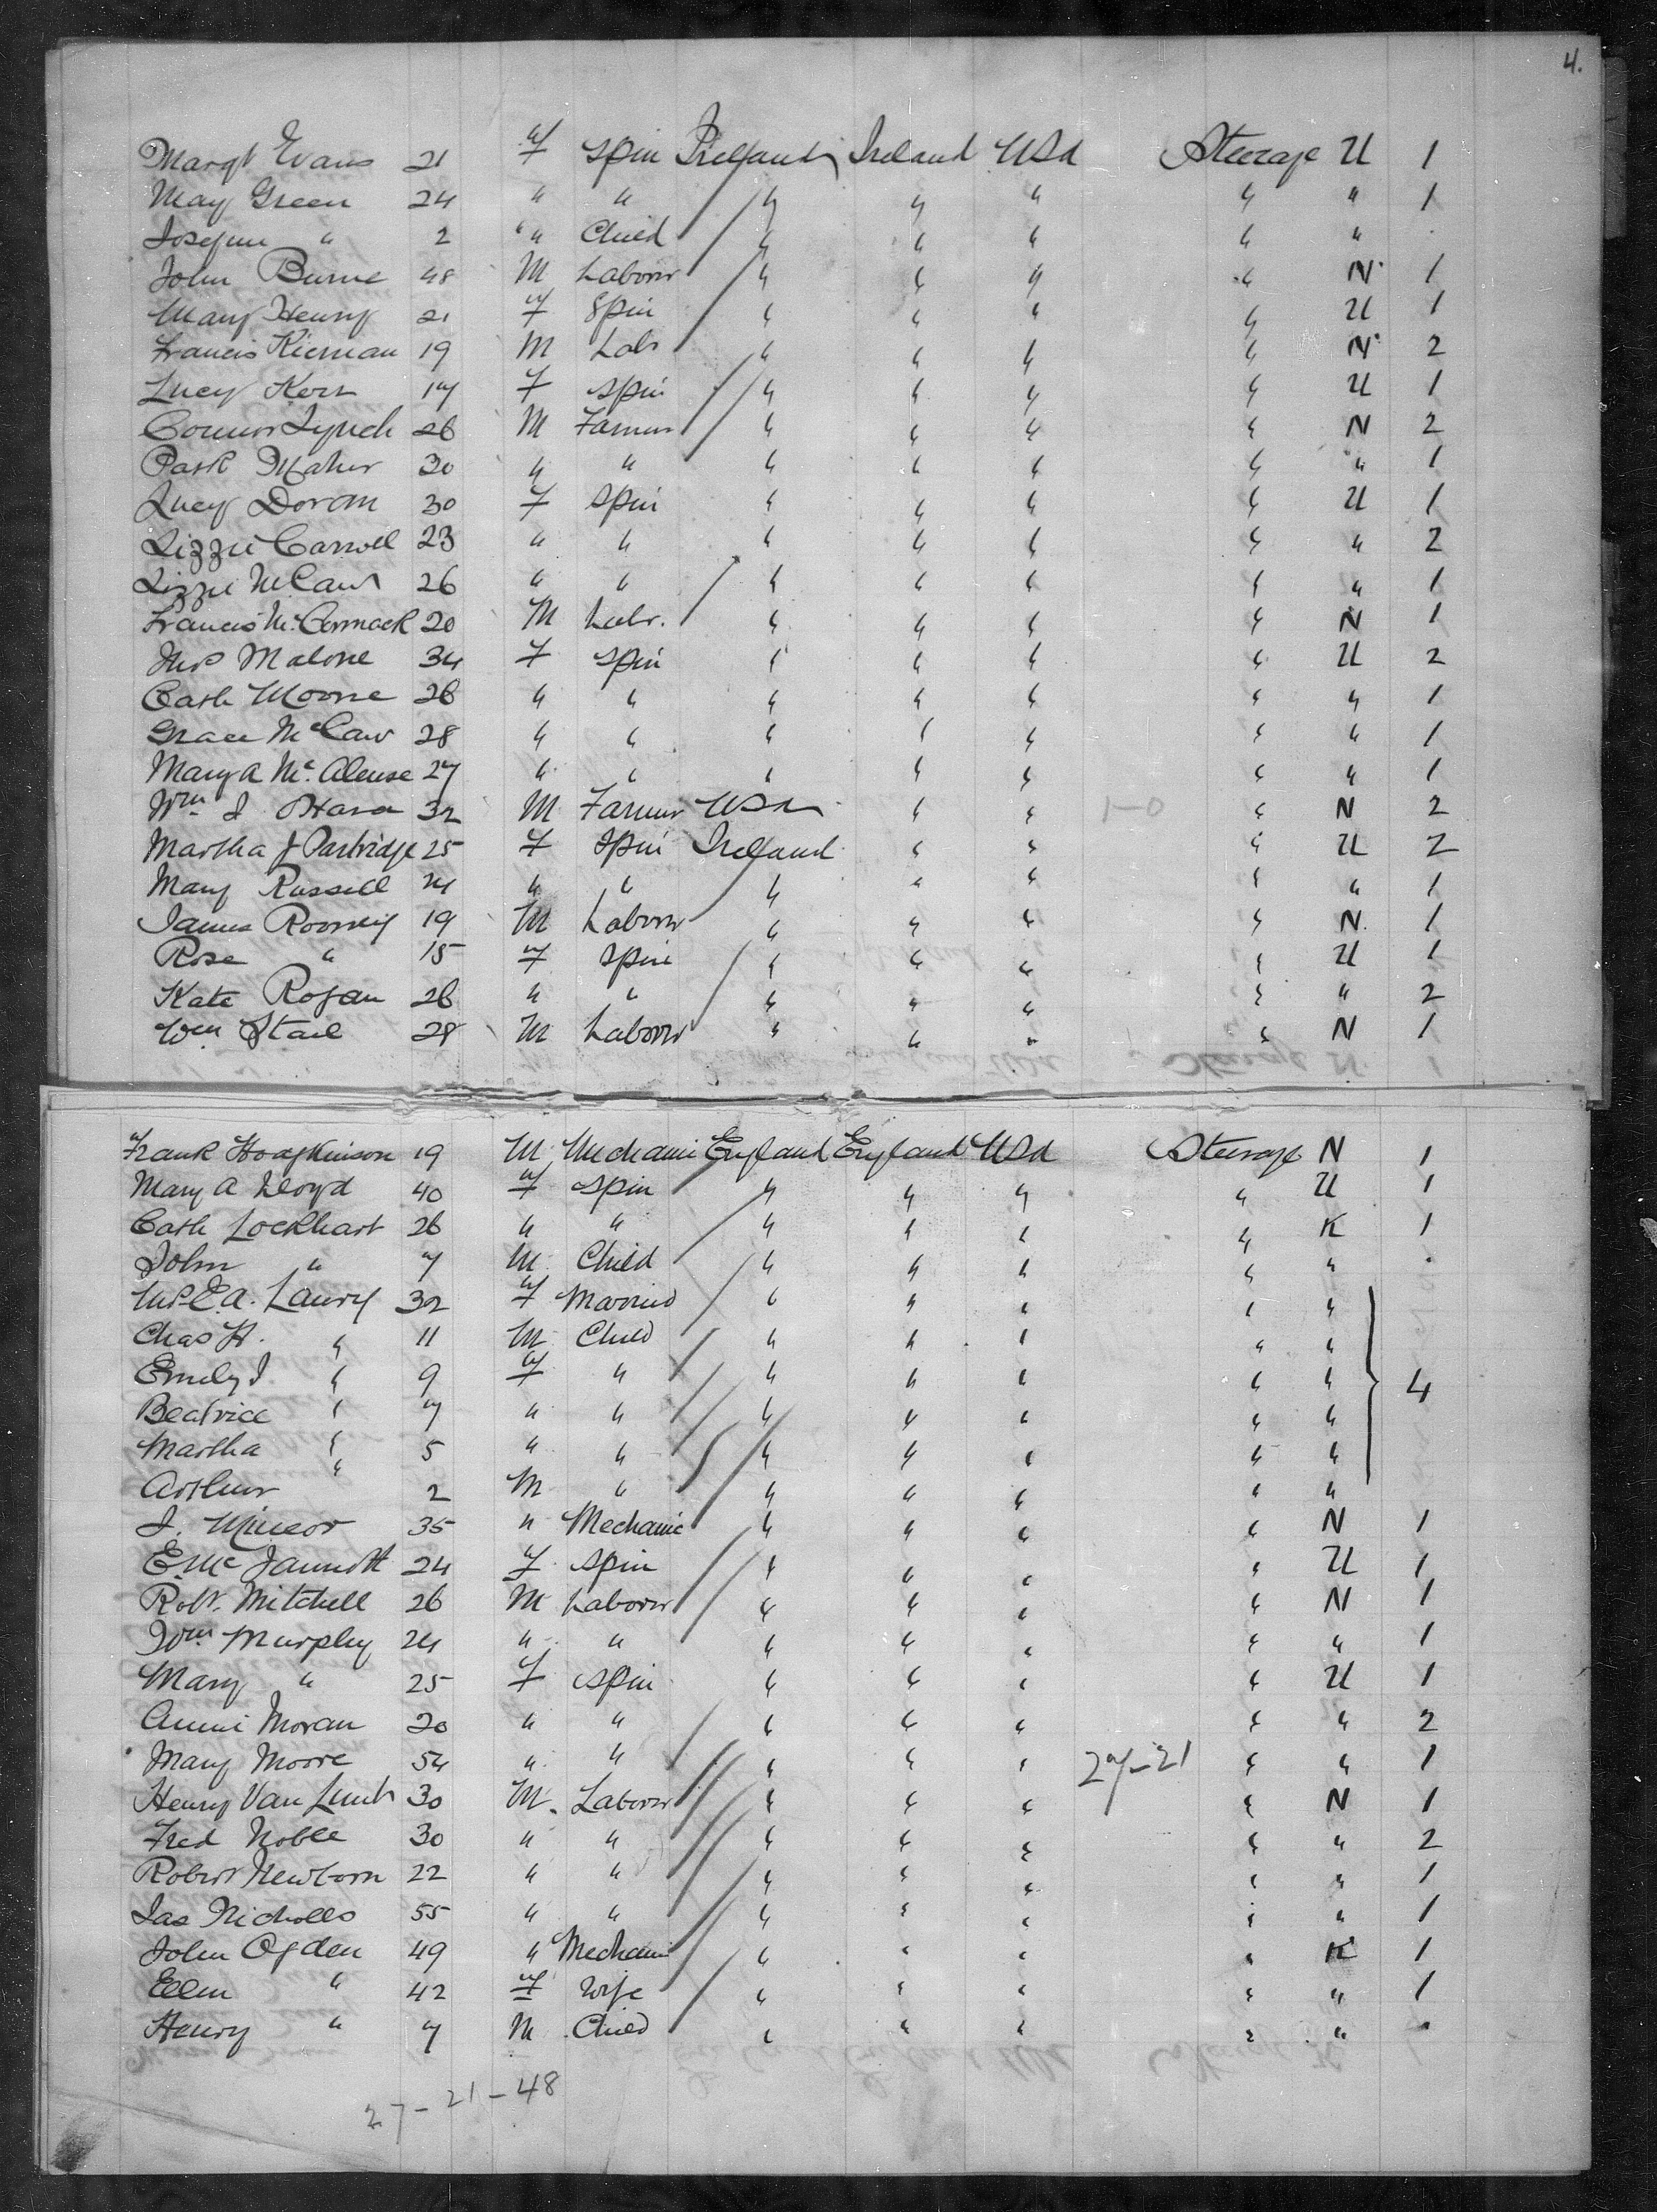 4.
Margt Evans 21 F Spin Ireland Ireland USA Steerage U 1
May Green 24 " " " " " " " 1
" 2 " " Child " " " " "
John Burne 48 M Laborer " " " " N 1
Mary Henry 21 F Spin " " " " U 1
Francis Kiernan 19 M Labr " " " " N 2
Lucy Kerr 17 F Spin " " " " U 1
Connor Lynch 26 M Farmer " " " " N 2
Patk Maher 30 " " " " " " " 1
Lucy Doran 30 F Spin " " " " U 1
Lizzie Carroll 23 " " " " " " " 2
Lizzie McCaw 26 " " " " " " " 1
Francis McCormack 20 M Labr. " " " " N 1
Malone 34 F Spin " " " " U 2
Cath Moore 26 " " " " " " " 1
Grace McCaw 28 " " " " " " " 1
Mary A Mc. Aleuse 27 " " " " " " " 1
Wm J OHara 32 M Farmer USA " " 1-0 " N 2
Martha J Partridge 25 F Spin Ireland " " " U 2
Mary Russell 24 " " " " " " " 1
James Rooney 19 M Laborer " " " " N 1
Rose " 15 F Spin " " " " U 1
Kate Rogan 26 " " " " " " " 2
Wm 28 M Laborer " " " " N 1
Frank Hodgkinson 19 M Mechanic England England USA Steerage N 1
Mary A Lloyd 40 F Spin " " " " U 1
Cath Lockhart 26 " " " " " " K 1
John " 7 M Child " " " " "
Mrs E.A. Laury 32 F Married " " " " "
Chas H. " 11 M Child " " " " "
Emily J " 9 F " " " " " " 4
Beatrice " 7 " " " " " " "
Martha " 5 " " " " " " "
Arthur " 2 M " " " " " "
J. 35 " Mechanic " " " " N 1
E. Mc 24 F Spin " " " " U 1
Robt. Mitchell 26 M Laborer " " " " N 1
Wm Murphy 24 " " " " " " " 1
Mary " 25 F Spin " " " " U 1
Annie Moran 20 " " " " " " " 2
Mary Moore 54 " " " " " 27-21 " " 1
Henry Van 30 M. Laborer " " " " N 1
Fred Noble 30 " " " " " " " 2
Robert Newborn 22 " " " " " " " 1
Jas Nicholls 55 " " " " " " " 1
John Ogden 49 " Mechanic " " " " K 1
Ellen " 42 F Wife " " " " " 1
Henry " 7 M Child " " " " "
27-21-48